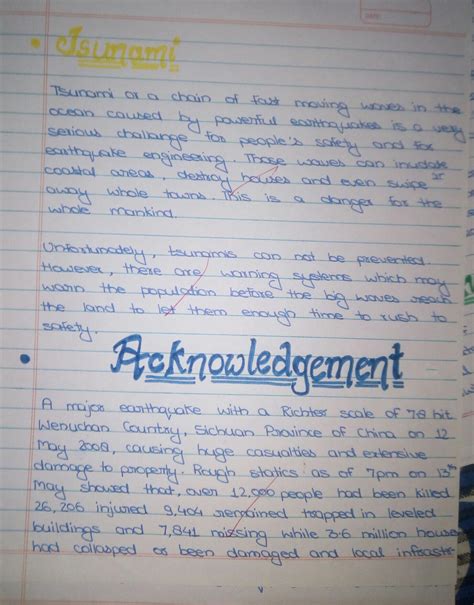 Tsunami
Tsunami or a chain of fast moving waves in the
ocean caused by powerful earthquakes is a very
serious challange for people's safety and for
earthquake engineering. Those waves can inudate
coastal areas, destroy houses and even swipe
away whole towns. This is a danger for the
whole mankind.
Unfortunately, tsunamis can not be prevented.
However, there are warning systems which may
warn the population before the big waves reach
the land to let them enough time to rush to
safety.
Acknowledgement
A major earthquake with a Richter scale of 78 hit
Wenuchan Country, Sichuan Province of China on 12
May 2008, causing huge casualties and extensive
damage to property. Rough statics as of 7pm on 13th
May showed that, over 12,000 people had been killed
26,206 injured 9,404 remained trapped in leveled
buildings and 7,841 missing while 3.6 million house
had collasped or been damaged and local infrastr